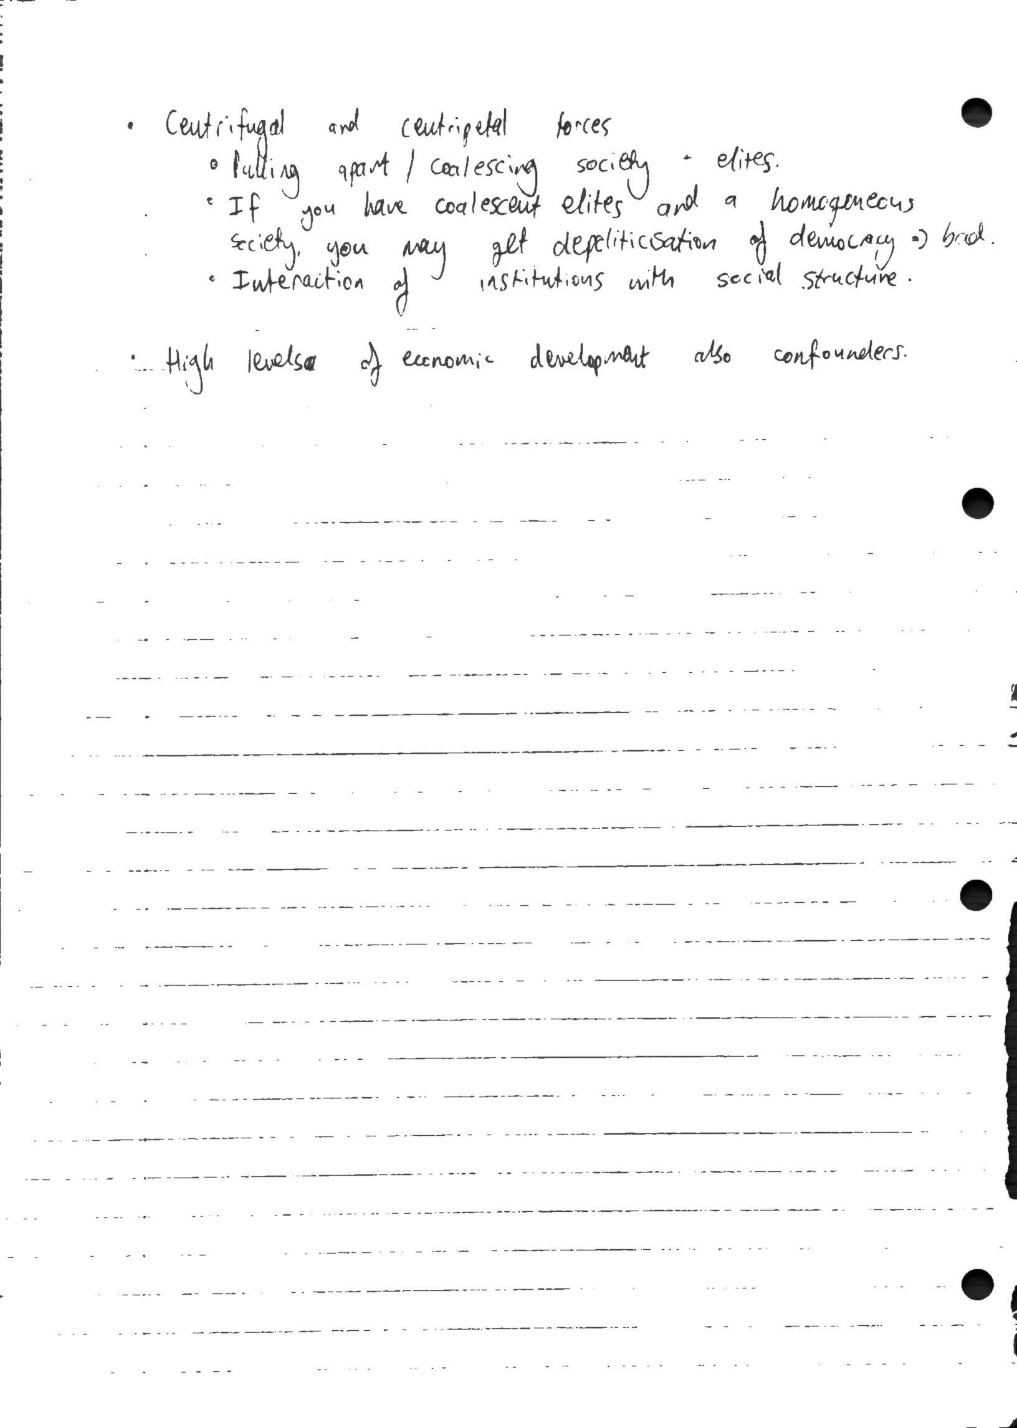 • Centrifugal and centripetal forces
• Pulling apart / coalescing society + elites.
• If you have coalescent elites and a homogeneous
society, you may get depoliticisation of democracy => bad.
• Interaction of institutions with social structure.
• High levels of economic development also confounders.